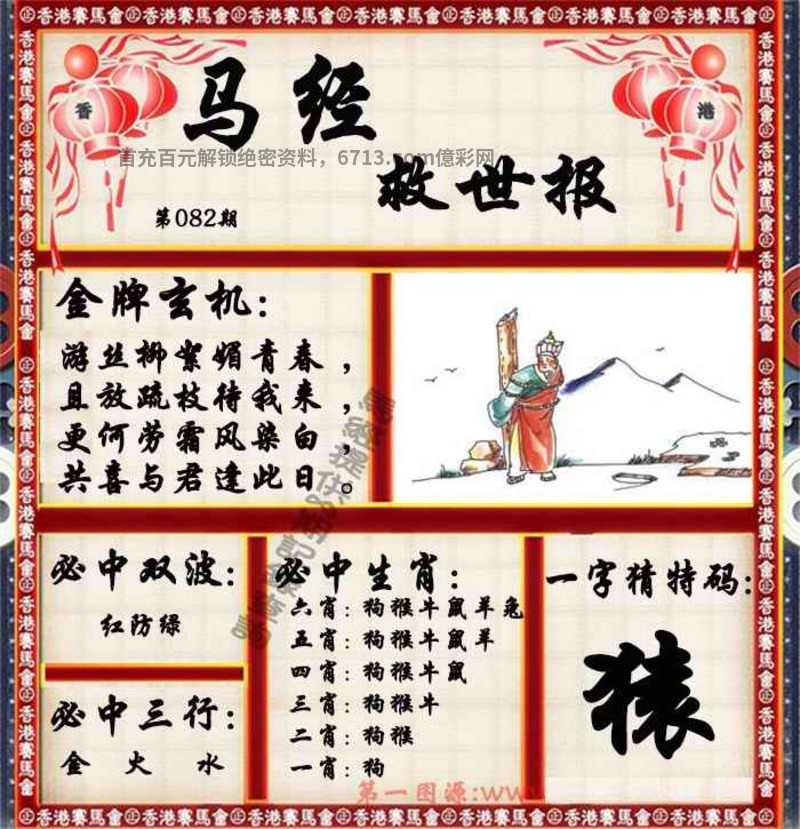 香 港
马经
救世报
首充百元解锁绝密资料，6713.com億彩网
第082期
金牌玄机：
游丝柳絮媚青春，
且放疏枝待我来，
更何劳霜风染白，
共喜与君逢此日。
必中双波：
红防绿
必中三行：
金 火 水
必中生肖：
六肖：狗猴牛鼠羊兔
五肖：狗猴牛鼠羊
四肖：狗猴牛鼠
三肖：狗猴牛
二肖：狗猴
一肖：狗
一字猜特码：
猿
第一图源:ww
正香港賽馬會正香港賽馬會正香港賽馬會正香港賽馬會正香港賽馬會正香港賽馬會